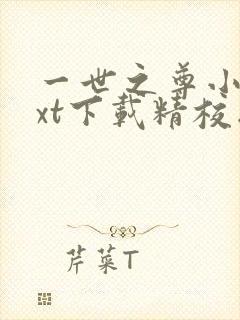 一世之尊小
xt下载精校
芹菜T